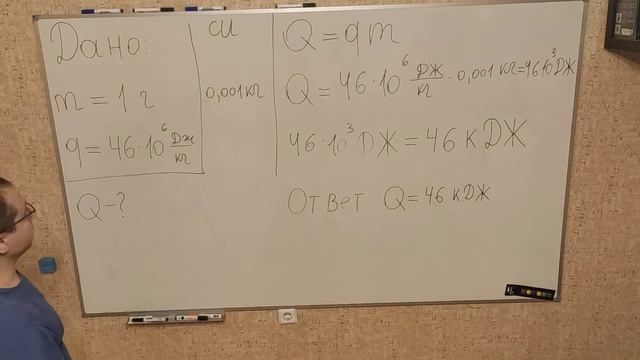 Дано:
m = 1 г
q = 46·10⁶ Дж/кг
Q - ?
СИ
0,001 кг
Q = qm
Q = 46·10⁶ ДЖ/кг · 0,001 кг = 46·10³ ДЖ
46·10³ ДЖ = 46 кДЖ
Ответ: Q = 46 кДЖ